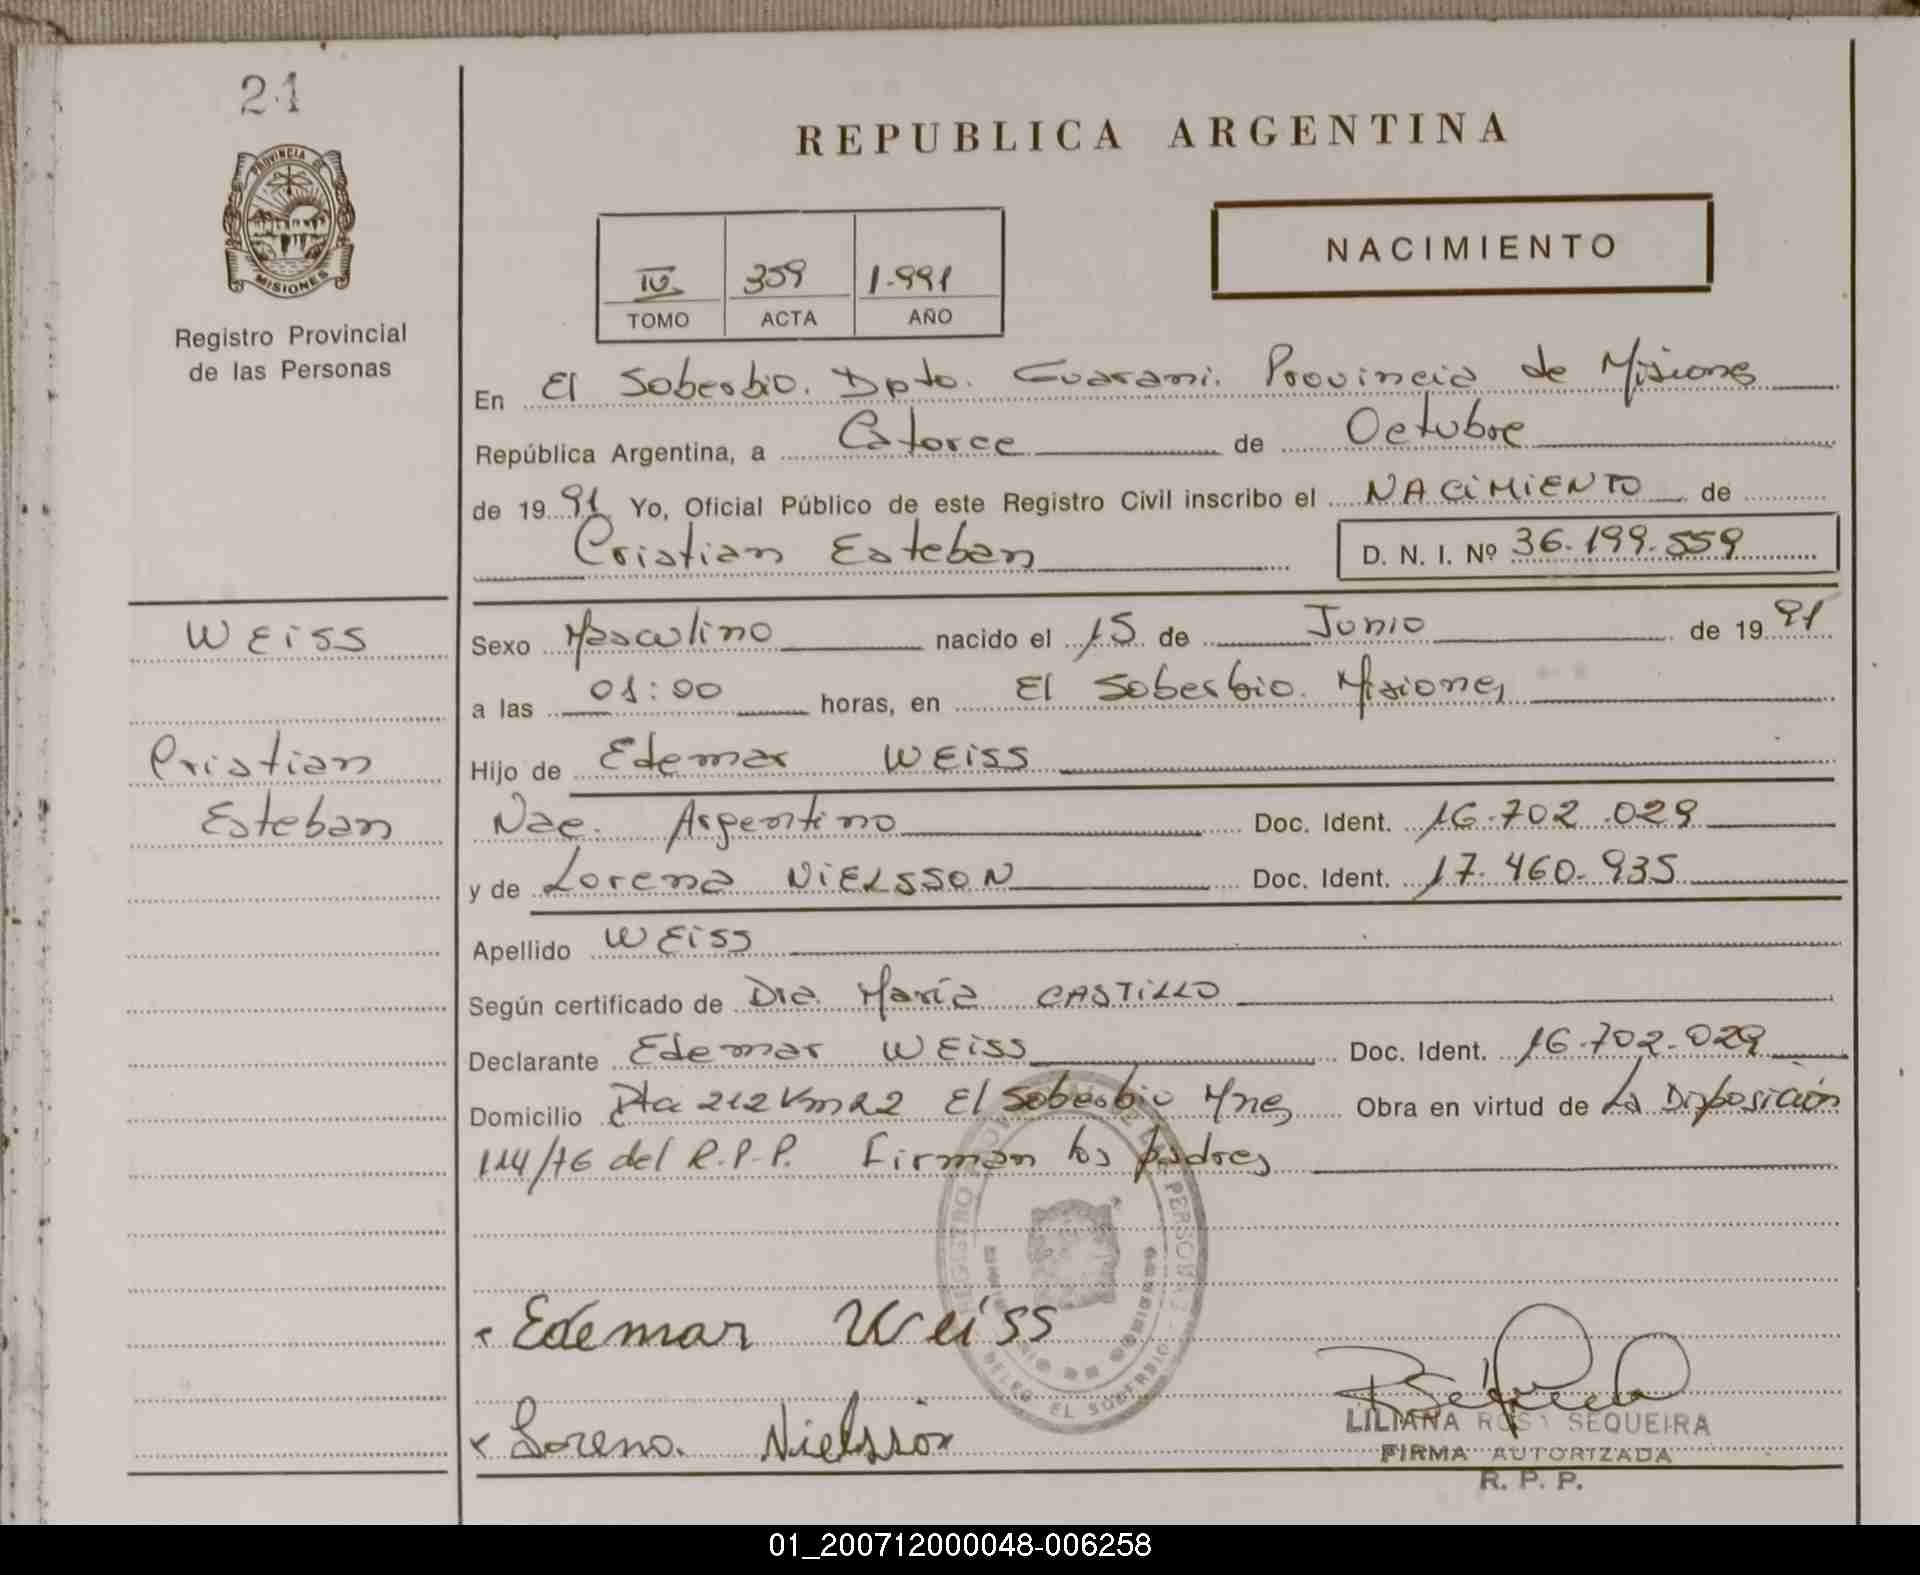 21
PROVINCIA DE
MISIONES
Registro Provincial
de las Personas
REPUBLICA ARGENTINA
NACIMIENTO
IV 359 1.991
TOMO ACTA AÑO
En El Soberbio. Dpto. Guarani. Provincia de Misiones
República Argentina, a Catorce de Octubre
de 19 91 Yo, Oficial Público de este Registro Civil inscribo el NACIMIENTO de
Cristian Esteban D. N. I. Nº 36.199.559
WEiss
Cristian
Esteban
Sexo Masculino nacido el 15 de Junio de 19 91
a las 01:00 horas, en El Soberbio. Misiones
Hijo de Edemar WEiss
Nac. Argentino Doc. Ident. 16.702.029
y de Lorena NiELSSON Doc. Ident. 17.460.935
Apellido WEiss
Según certificado de Dra. María CASTiLLO
Declarante Edemar WEiss Doc. Ident. 16.702.029
Domicilio Rta 212 Km 22 El Soberbio Mnes Obra en virtud de La Disposición
114/76 del R.P.P. Firman los padres
Edemar Weiss
Lorena Nielsson
LILIANA ROSA SEQUEIRA
FIRMA AUTORIZADA
R. P. P.
01_200712000048-006258